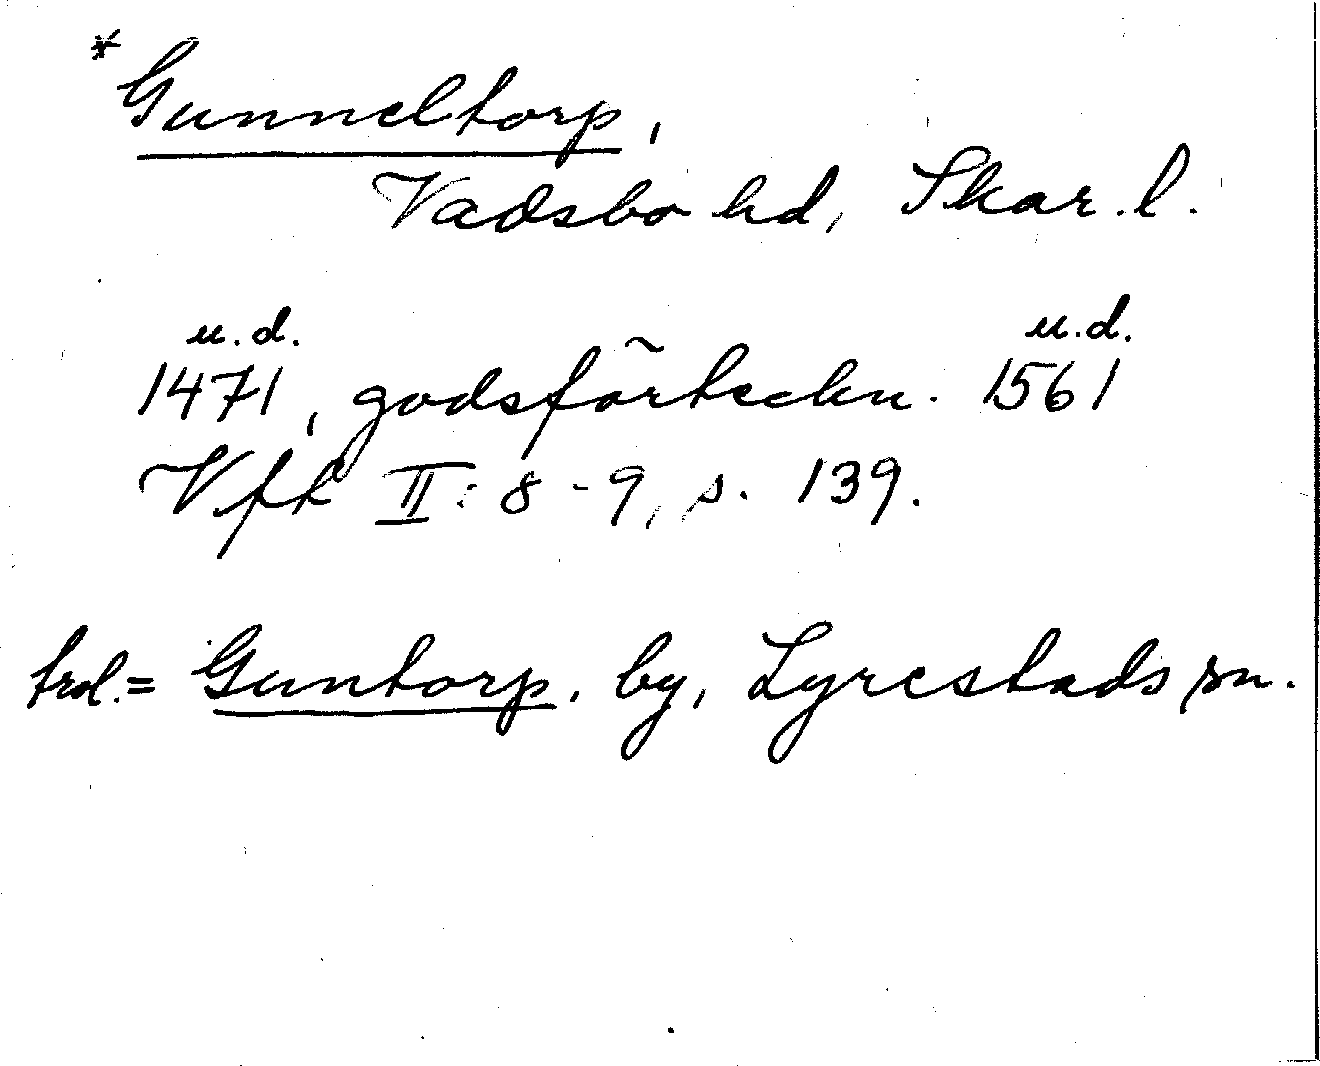 * Gunneltorp,
Vadsbo hd, Skar. l.
u.d. u.d.
1471, godsförteckn. 1561
Vfk II: 8-9, s. 139.
trol. = Guntorp, by, Lyrestads sn.